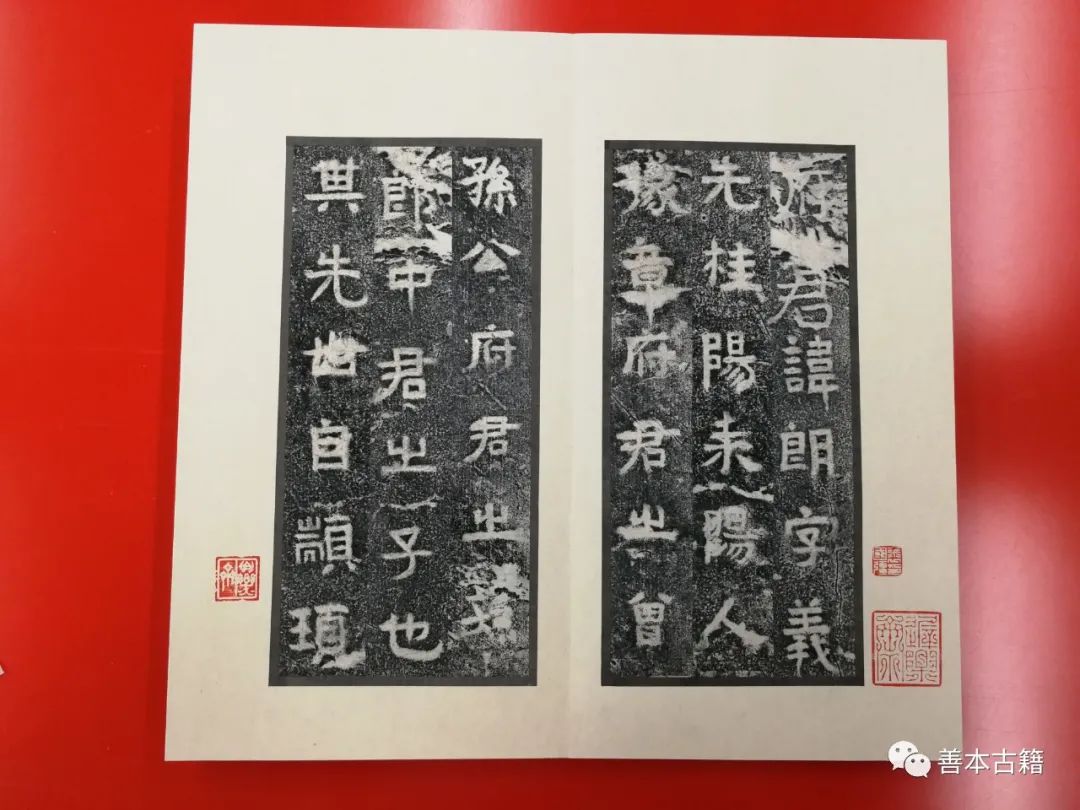 府君諱朗字義
先桂陽耒陽人
豫章府君之曾
孫公府君之孫
郎中君之子也
其先世自顓頊
善本古籍